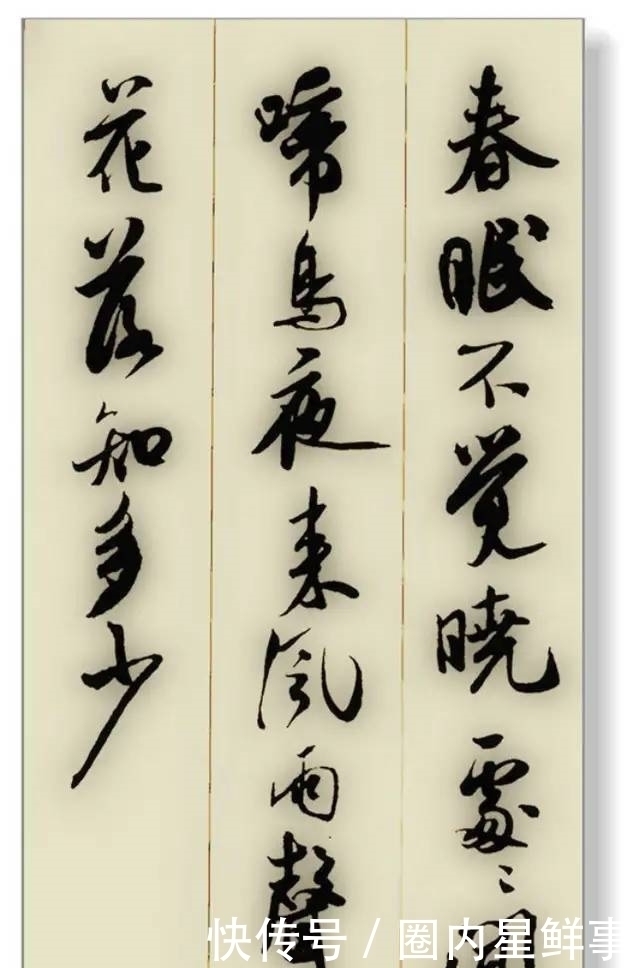 春眠不觉晓處〻聞
啼鳥夜来風雨聲
花落知多少
快传号/圈内星鲜事